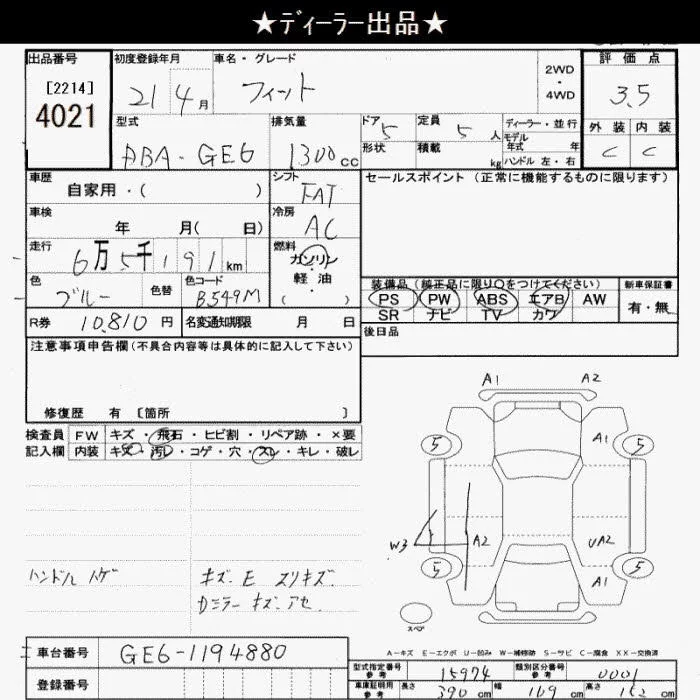 ★ディーラー出品★
出品番号 初度登録年月 車名・グレード 2WD・4WD 評価点
[2214] 4021 21 4月 フィット 3.5
型式 排気量 ドア 定員 ディーラー・並行 外装 内装
ABA-GE6 1300cc 5 5人 モデル年式 年 C C
形状 積載 kg ハンドル 左・右
車歴 シフト セールスポイント (正常に機能するものに限ります)
自家用・( ) FAT
車検 冷房
年 月( 日) AC
走行 燃料
6万5千191km ガソリン・軽油・( )
色 色替 色コード 装備品 (純正品に限り○をつけてください) 新車保証書
ブルー B549M PS PW ABS エアB AW 有・無
SR ナビ TV カワ
R券 10,810円 名変通知期限 月 日 後日品
注意事項申告欄(不具合内容等は具体的に記入して下さい)
修復歴 有 [箇所 ]
検査員 FW キズ・飛石・ヒビ割・リペア跡・×要
記入欄 内装 キズ・汚レ・コゲ・穴・スレ・キレ・破レ
A1 A2
5 A1 5
W3 A2 UA2
5 A1 5
スペア
ハンドル ハゲ キズ.E スリキズ.
Dミラー キズ.アセ.
A-キズ E-エクボ U-凹み W-補修跡 S-サビ C-腐食 XX-交換済
車台番号 GE6-1194880
登録番号
型式指定番号 参考 15974 類別区分番号 参考 0001
車庫証明用 参考 長さ 390cm 幅 169cm 高さ 152cm